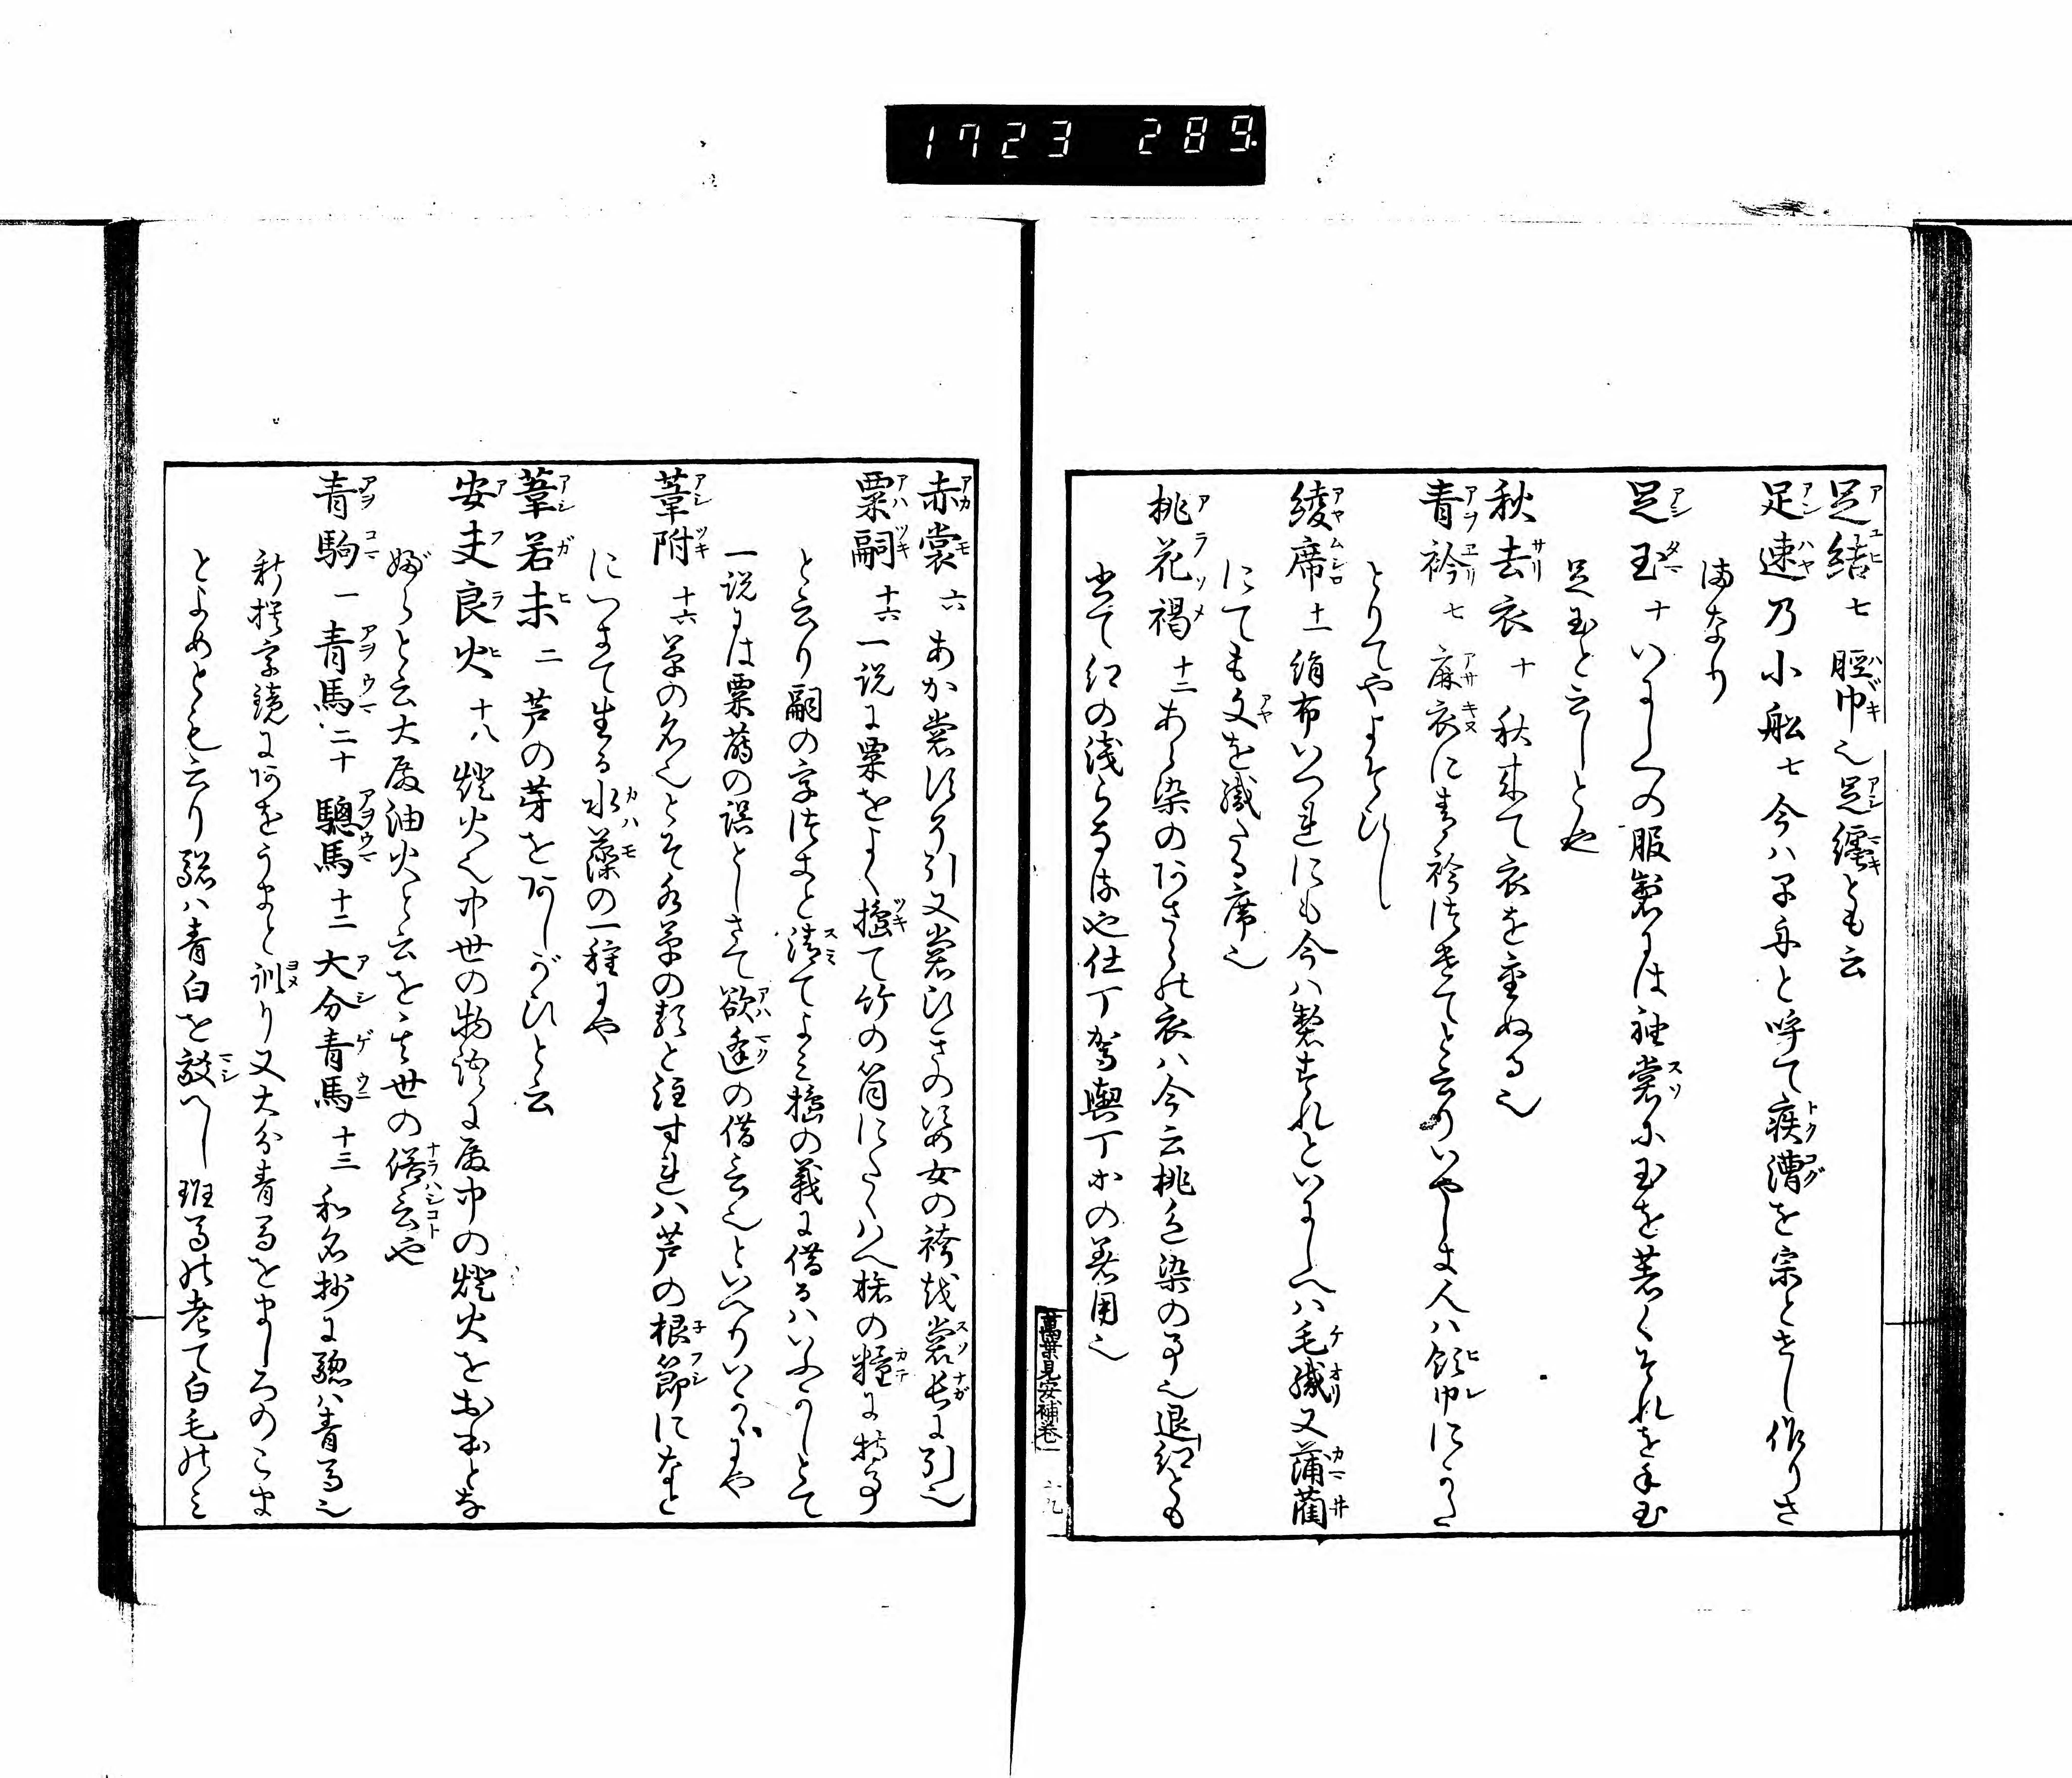 1723 289
足結 七 脛巾也足纏とも云
足速乃小舩 七 今ハ早舟と呼て疾漕を宗とさし作りさ
まなり
足玉 十 いにしへの服製には袖裳に玉を着くそれを手玉
足玉と云しとや
秋去衣 十 秋来て衣を重ぬる也
青衿 七 麻衣に青衿はきてと云りいやしき人ハ領巾にかた
とりてやよそひし
綾席 十一 絹布いつれにも今ハ製すれといにしへハ毛織又蒲藺
にても文を織たる席也
桃花褐 十二 あら染のあさらの衣ハ今云桃色染の事也退紅とも
出て紅の浅らなるや仕丁駕輿丁等の着用也
萬葉見安補巻一
赤裳 六 あか裳すそ引又裳ひきの姿女の袴或裳長に引也
粟嗣 十六 一説に粟をよく搗て竹の筒にたくハへ旅の糧に持事
と云り嗣の字はきと清てよミ搗の義に借るハいふかしとて
一説には粟蒔の誤としさて欲逢の借言也といへりいかゝにや
葦附 十六 草の名也とそ水草の類と注すれハ芦の根節になと
につきて生る水藻の一種にや
葦若末 二 芦の芽をあしがひと云
安夫良火 十八 燈火也中世の物語に殿中の燈火をおほとな
ぶらと云大殿油火と云を其世の俗言や
青駒 一 青馬 二十 驄馬 十二 大分青馬 十三 和名抄に驄ハ青馬也
新撰字鏡にあをうまと訓り又大分青馬をましろのこま
とよめとも云り驄ハ青白を敍へし班馬の老て白毛のミ